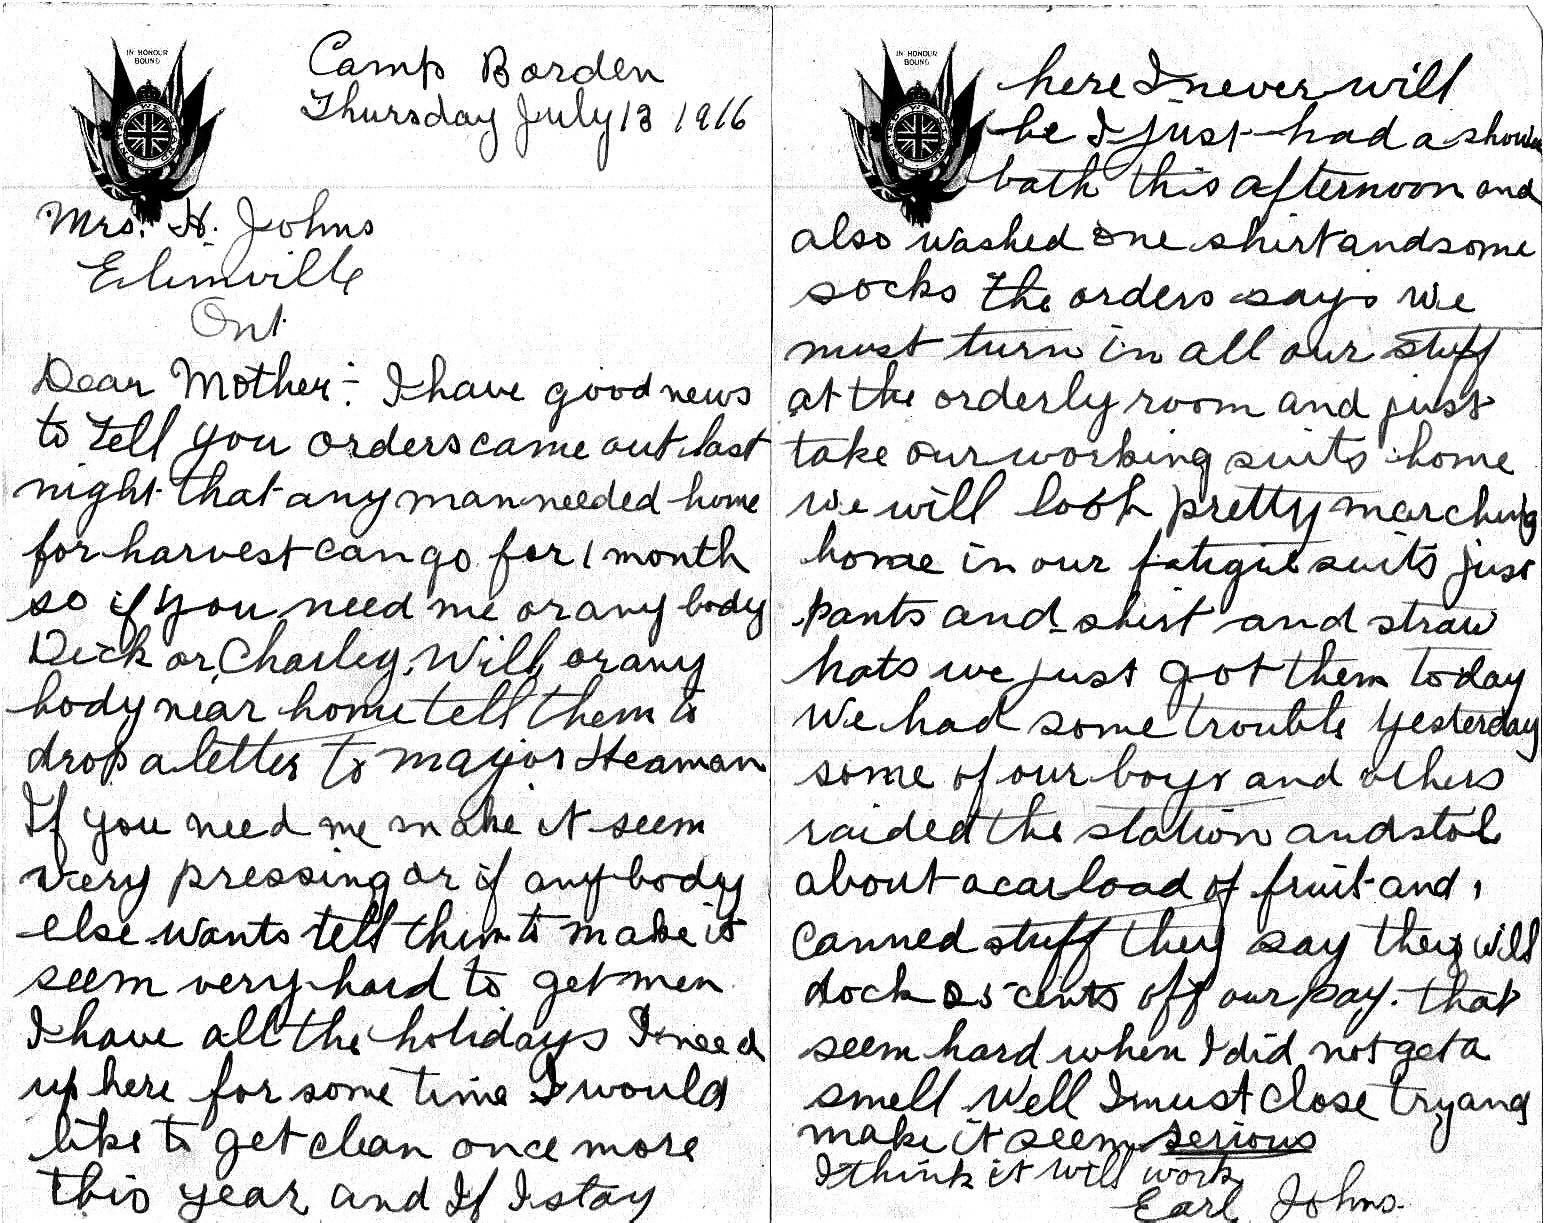 IN HONOUR
BOUND
Camp Borden
Thursday July 13 1916
Mrs. H. Johns
Elimville
Ont.
Dear Mother:- I have good news
to tell you orders came out last
night that any man needed home
for harvest can go for 1 month
so if you need me or any body
Dick or Charley, Will, or any
body near home tell them to
drop a letter to major Heaman
If you need me make it seem
very pressing or if any body
else wants tell them to make it
seem very hard to get men
I have all the holidays I need
up here for some time I would
like to get clean once more
this year and If I stay
IN HONOUR
BOUND
here I never will
be I just had a shower
bath this afternoon and
also washed one shirt and some
socks the orders says we
must turn in all our stuff
at the orderly room and just
take our working suits home
we will look pretty marching
home in our fatigue suits just
pants and shirt and straw
hats we just got them today
We had some trouble yesterday
some of our boys and others
raided the station and stole
about a car load of fruit and
canned stuff they say they will
dock 25 cents off our pay. that
seem hard when I did not get a
smell Well I must close try and
make it seem serious
I think it will work
Earl Johns.